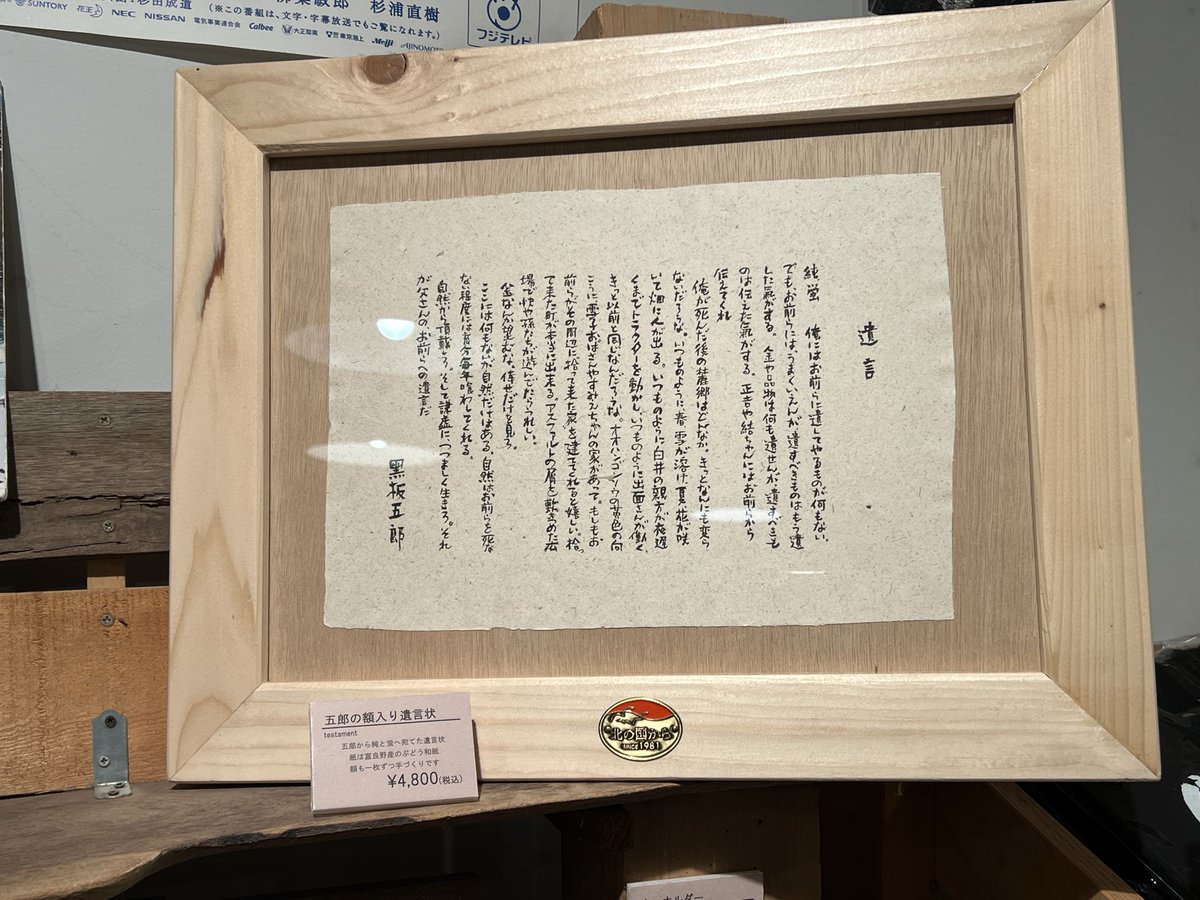 杉田成道
柳葉敏郎 杉浦直樹
(※この番組は、文字・字幕放送でもご覧になれます。)
SUNTORY 花王 NEC NISSAN 電気事業連合会 Calbee 大正製薬 東京海上 Meiji AJINOMOTO
フジテレビ
遺言
純 蛍 俺にはお前らに遺してやるものが何もない。
でも、お前らには、うまくいえんが、遺すべきものはもう遺
した気がする。金や品物は何も遺せんが、遺すべきも
のは伝えた気がする。正吉や結ちゃんにはお前から
伝えてくれ
俺が死んだ後の麓郷はどんなか。きっとなんにも変ら
ないだろうな。いつものように春、雪が溶け、夏、花が咲
いて畑に人が出る。いつものように白井の親方が夜遅
くまでトラクターを動かし、いつものように出面さんが働く
きっと以前と同じなんだろうな。オオハンゴンソウの黄色の向
こうに雪子おばさんやすみえちゃんの家があって。もしもお
前らがその周辺に拾って来た家を建ててくれると嬉しい。拾っ
て来た町が本当に出来る。アスファルトの屑を敷きつめた広
場で快や孫たちが遊んでたらうれしい。
金なんか望むな。倖せだけを見ろ。
ここには何もないが自然だけはある。自然はお前らを死な
ない程度には充分毎年喰わしてくれる。
自然から頂戴しろ。そして謙虚につつましく生きろ。それ
が父さんの、お前らへの遺言だ
黒板五郎
北の国から
SINCE 1981
五郎の額入り遺言状
testament
五郎から純と蛍へ宛てた遺言状
紙は富良野産のぶどう和紙
額も一枚ずつ手づくりです
¥4,800(税込)